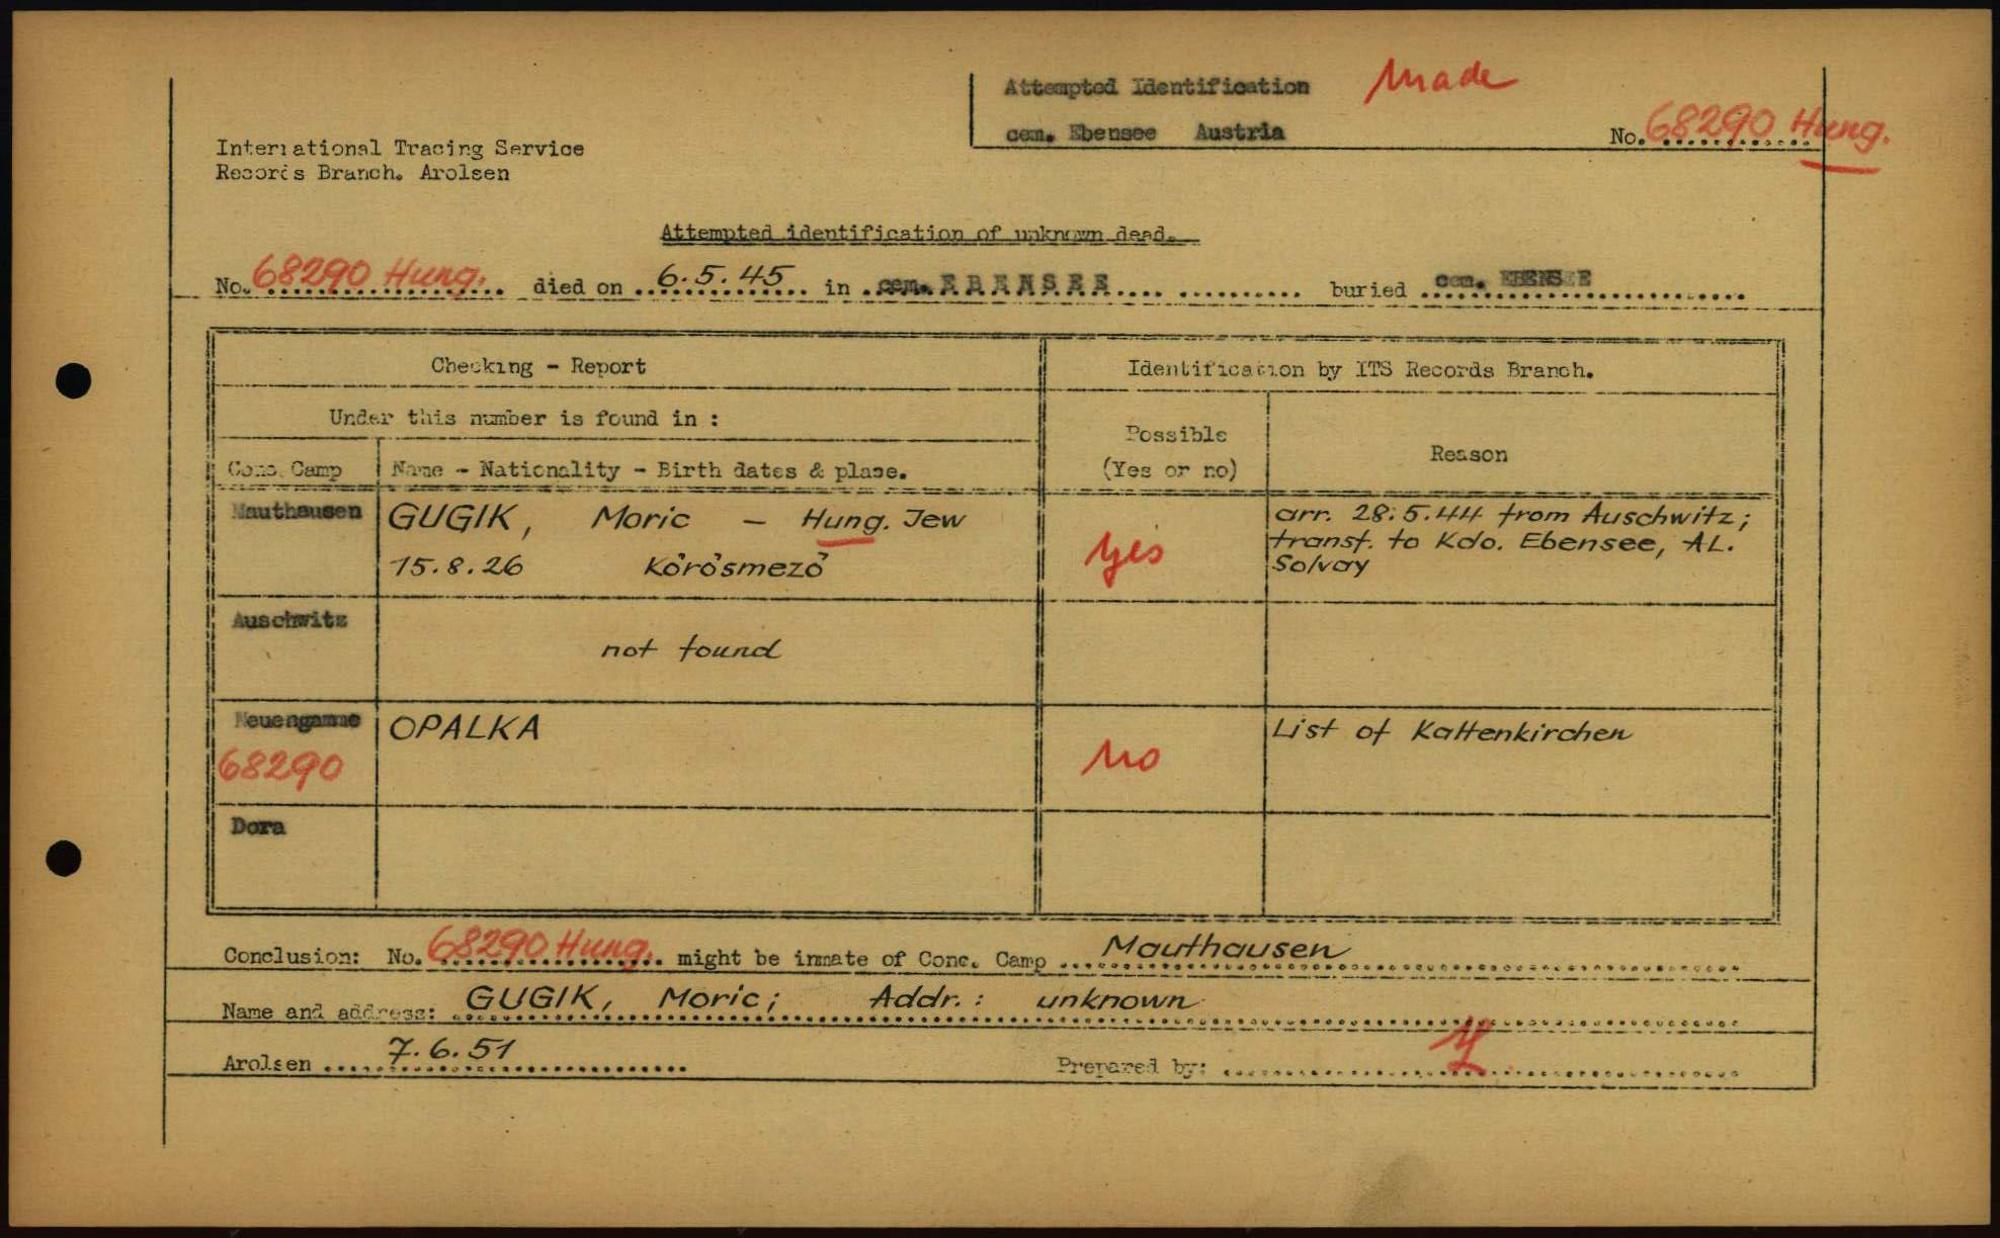 Attempted Identification Made
cem. Ebensee Austria No. 68290 Hung.
International Tracing Service
Records Branch. Arolsen
Attempted identification of unknown dead.
No. 68290 Hung. died on 6.5.45 in cem. EBENSEE buried cem. EBENSEE
Checking - Report
Identification by ITS Records Branch.
Under this number is found in :
Possible
(Yes or no)
Reason
Conc. Camp Name - Nationality - Birth dates & place.
Mauthausen GUGIK, Moric - Hung. Jew
15.8.26 Körösmezö
yes
arr. 28.5.44 from Auschwitz;
transf. to Kdo. Ebensee, AL.
Solvay
Auschwitz
not found
Neuengamme OPALKA
68290
no
List of Kaltenkirchen
Dora
Conclusion: No. 68290 Hung. might be inmate of Conc. Camp Mauthausen
Name and address: GUGIK, Moric; Addr.: unknown
Arolsen 7.6.51 Prepared by: